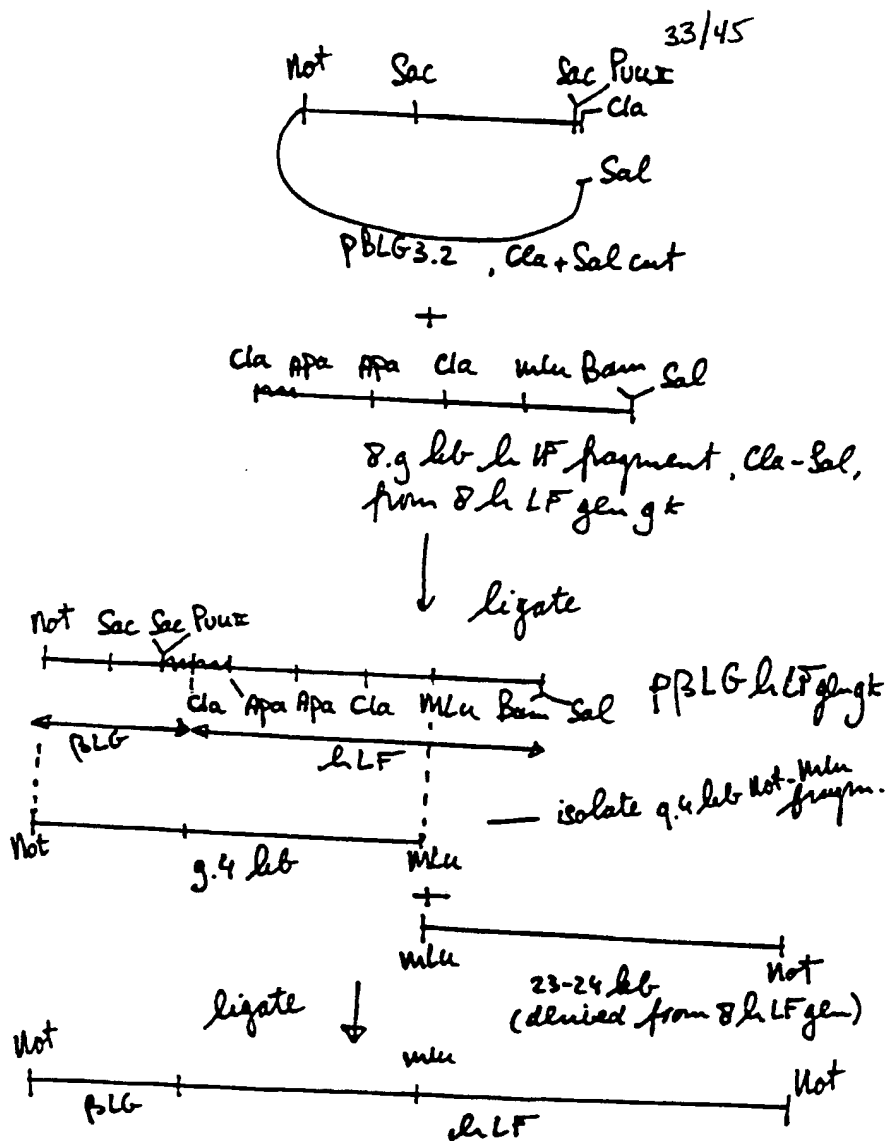 33/45
Not Sac Sac PvuII
Cla
Sal
pBLG3.2, Cla + Sal cut
+
Cla Apa Apa Cla Mlu Bam Sal
8.9 kb hLF fragment, Cla-Sal,
from 8hLFgen 9k
ligate
Not Sac Sac PvuII
Cla Apa Apa Cla Mlu Bam Sal
pβLGhLFgen9k
βLG hLF
isolate 9.4 kb Not-Mlu
fragm.
Not 9.4 kb Mlu
+
Mlu Not
23-24 kb
(derived from 8hLFgen)
ligate
Not Mlu Not
βLG hLF